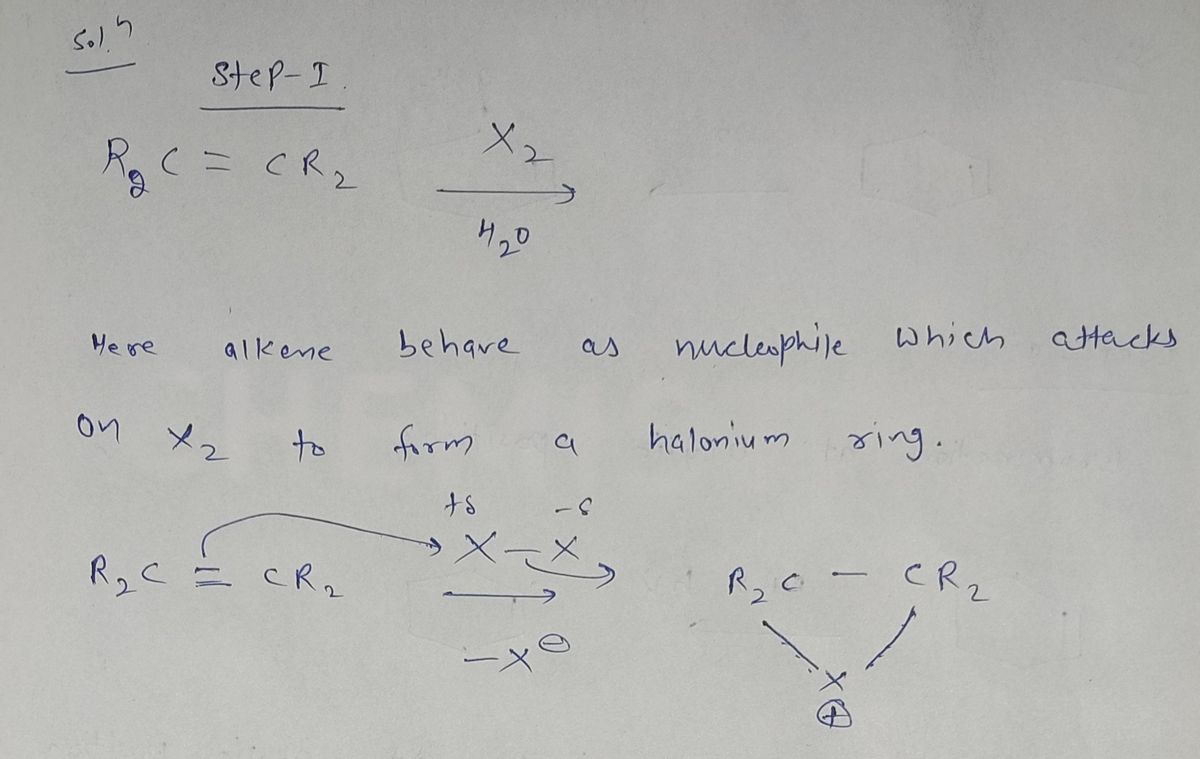 Sol.ⁿ
Step-I.
R₂C = CR₂ X₂ ⟶ H₂O
Here alkene behave as nucleophile which attacks
on X₂ to form a halonium ring.
+δ -δ
R₂C = CR₂ X-X ⟶ R₂C - CR₂
-X⊖ X
⊕